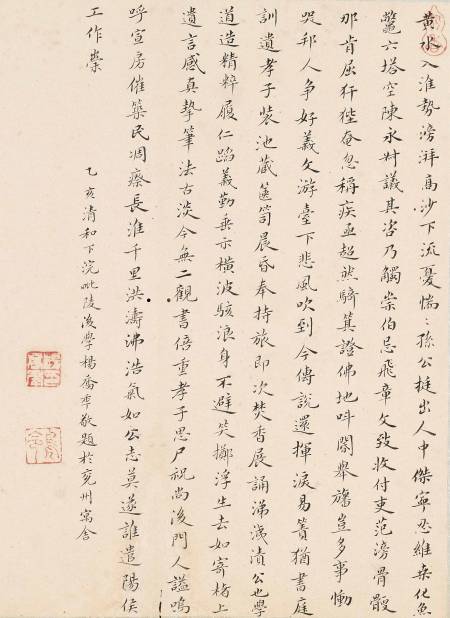 黄水入淮勢滂湃高沙下流憂惴〻孫公挺出人中傑寧忍維桑化魚
鼈六塔空陳永叔議其咨乃觸崇伯忌飛章文致收付吏范滂骨鯁
那肯屈犴狴奄忽稱疾亟超然騎箕證佛地叫閽舉旛豈多事慟
哭邦人争好義文游臺下悲風吹到今傳說還揮淚易簀猶書庭
訓遺孝子裝池藏篋笥晨昏奉持旅即次焚香展誦涕洟漬公也學
道造精粹履仁蹈義勤垂示橫波駭浪身不避笑擲浮生去如寄楮上
遺言感真摯筆法古淡今無二觀書倍重孝子思尸祝尚後門人謚嗚
呼宣房催築民凋瘵長淮千里洪濤沸浩氣如公志莫遂誰遣陽侯
工作祟
乙亥清和下浣毗陵後學楊喬季敬題於兖州寓舍